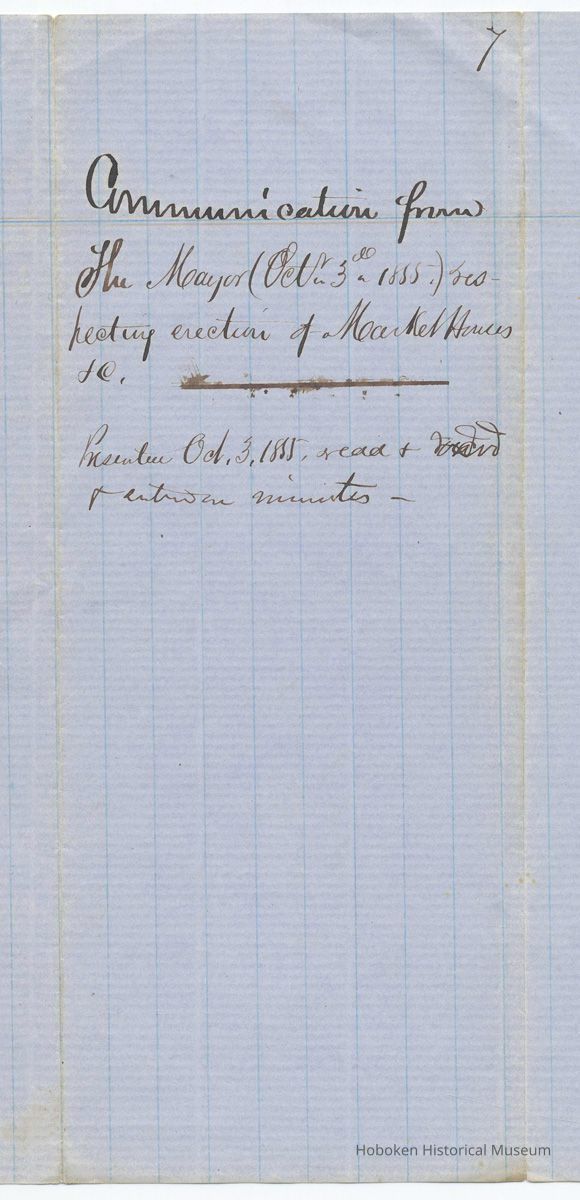 7
Communication from
The Mayor (Octr. 3d. 1855.) res-
pecting erection of Market Houses
&c.
Presented Oct. 3, 1855, read &
& enterd on minutes —
Hoboken Historical Museum